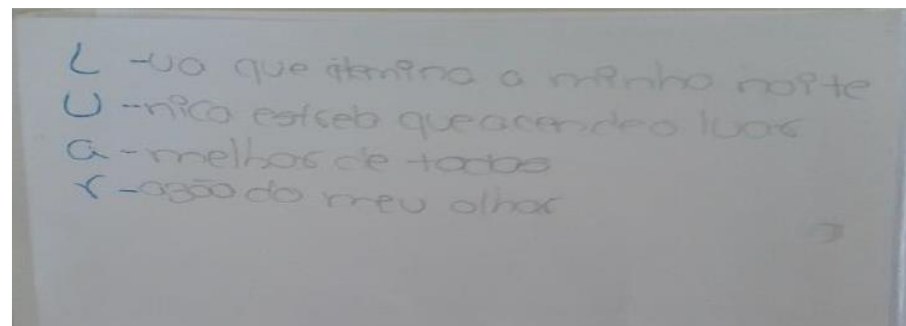 L -ua que ilemina a minha noite
U -nica estrela que acende o luar
a - melhor de todas
r -azão do meu olhar